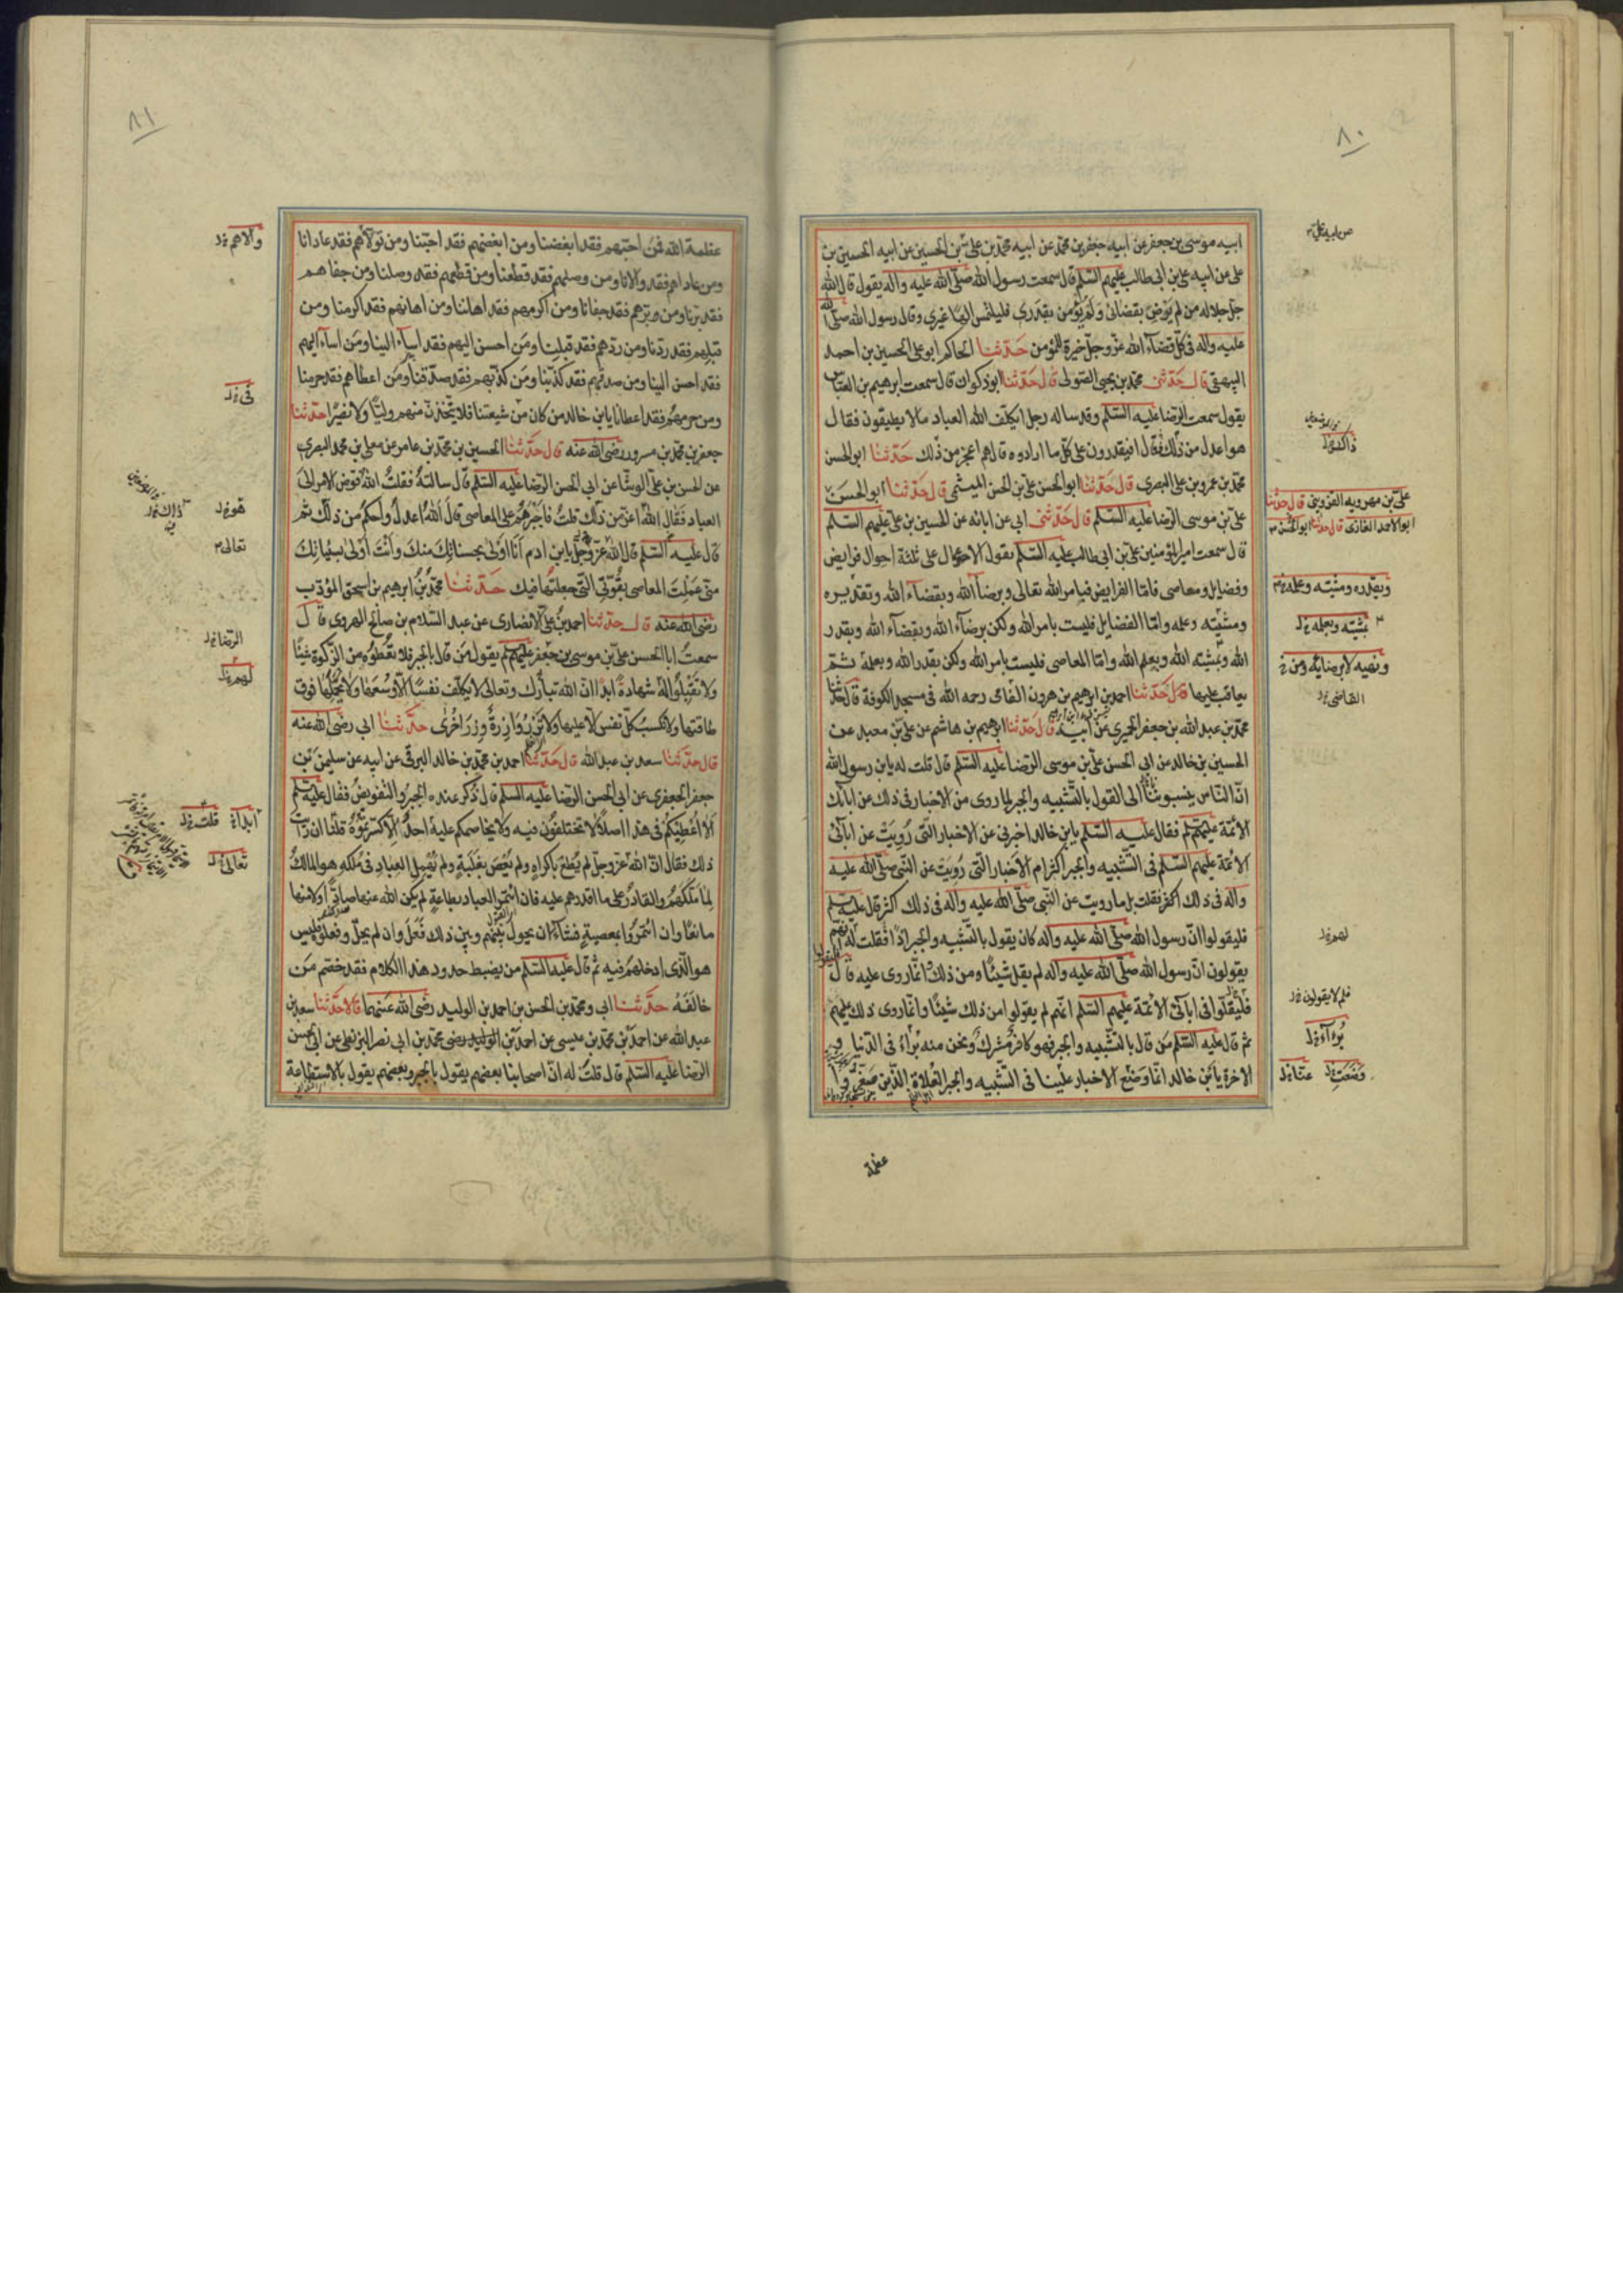 ٨٠
ابيه موسى بن جعفر عن ابيه جعفر بن محمّد عن ابيه محمّد بن علىّ عن ابيه علىّ بن الحسين عن ابيه الحسين بن
على عن ابيه على بن ابى طالب عليهم السّلم قال سمعت رسول الله صلّى الله عليه وآله يقول قال الله
جلّ جلاله من لم يرض بقضائى ولم يؤمن بقدرى فليلتمس الهًا غيرى وقال رسول الله صلّى الله
عليه وآله فى كلّ قضآء الله عزّ وجلّ خيرة للمؤمن حدّثنا الحاكم ابو على الحسين بن احمد
البيهقى قال حدّثنى محمّد بن يحيى الصّولى قال حدّثنا ابو ذكوان قال سمعت ابرهيم بن العبّاس
يقول سمعت الرضا عليه السّلم وقد ساله رجل ايكلّف الله العباد مالا يطيقون فقال
هو اعدل من ذلك قال افيقدرون على كلّ ما ارادوه قال هم اعجز من ذلك حدّثنا ابو الحسن
محمّد بن عمرو بن على البصرى قال حدّثنا ابو الحسن علىّ بن الحسن الميثمى قال حدّثنا ابو الحسن
علىّ بن موسى الرّضا عليه السّلم قال حدّثنى ابى عن ابائه عن الحسين بن على عليهم السّلم
قال سمعت امير المؤمنين علىّ بن ابى طالب عليه السّلم يقول الاعمال على ثلثة احوال فرايض
وفضايل ومعاصى فامّا الفرايض فبامر الله تعالى وبرضآ الله وبقضآء الله وتقديره
ومشيّته وعلمه وامّا الفضايل فليست بامر الله ولكن برضآء الله وبقضآء الله وبقدر
الله وبمشيّته الله وبعلم الله وامّا المعاصى فليست بامر الله ولكن بقدر الله وبعلمه ثمّ
يعاقب عليها قال حدّثنا احمد بن ابرهيم بن هرون الفامى رحمه الله فى مسجد الكوفة قال حدّثنا
محمّد بن عبد الله بن جعفر الحميرى عن ابيه قال حدّثنا ابرهيم بن هاشم عن علىّ بن معبد عن
الحسين بن خالد عن ابى الحسن علىّ بن موسى الرضا عليه السّلم قال قلت له يابن رسول الله
انّ النّاس ينسبوننا الى القول بالتّشبيه والجبر لما روى من الاخبار فى ذلك عن ابائك
الائمّة عليهم السّلم فقال عليه السّلم يابن خالد اخبرنى عن الاخبار الّتى رُويت عن ابآئى
الائمّة عليهم السّلم فى التّشبيه والجبر اكثر ام الاخبار الّتى رُويت عن النّبى صلّى الله عليه
وآله فى ذلك اكثر فقلت بل ما رويت عن النّبى صلّى الله عليه وآله فى ذلك اكثر قال عليه السّلم
فليقولوا انّ رسول الله صلّى الله عليه وآله كان يقول بالتّشبيه والجبر اذًا فقلت له انّهم
يقولون انّ رسول الله صلّى الله عليه وآله لم يقل شيئًا ومن ذلك وانّما روى عليه قال
فليقولوا فى ابآئى الائمّة عليهم السّلم انّهم لم يقولوا من ذلك شيئًا وانّما روى ذلك عليهم
ثم قال عليه السّلم من قال بالتّشبيه والجبر فهو كافر مشرك ونحن منه بُرآء فى الدّنيا و
الاخرة يابن خالد انّما وضع الاخبار علينا فى التّشبيه والجبر الغُلاة الّذين صغّروا
عظمة
علىّ بن مهرويه القزوينى قال حدّثنا
ابو احمد الغازى قال حدّثنا ابو الحسن
القاضى
٨١
عظمة الله فمن احبّهم فقد ابغضنا ومن ابغضهم فقد احبّنا ومن تولّاهم فقد عادانا
ومن عاداهم فقد والانا ومن وصلهم فقد قطعنا ومن قطعهم فقد وصلنا ومن جفاهم
فقد برّنا ومن برّهم فقد جفانا ومن اكرمهم فقد اهاننا ومن اهانهم فقد اكرمنا ومن
قبلهم فقد ردّنا ومن ردّهم فقد قبلنا ومن احسن اليهم فقد اسآء الينا ومن اسآء اليهم
فقد احسن الينا ومن صدّقهم فقد كذّبنا ومن كذّبهم فقد صدّقنا ومن اعطاهم فقد حرمنا
ومن حرمهم فقد اعطانا يابن خالد من كان من شيعتنا فلا يتّخذنّ منهم وليّا ولا نصيرًا حدّثنا
جعفر بن محمّد بن مسرور رضى الله عنه قال حدّثنا الحسين بن محمّد بن عامر عن معلى بن محمد البصرى
عن الحسن بن علىّ الوشّا عن ابى الحسن الرّضا عليه السّلم قال سالته فقلت الله فوّض الامر الى
العباد فقال الله اعزّ من ذلك قلت فاجبرهم على المعاصى قال الله اعدل واحكم من ذلك ثم
قال عليه السّلم قال الله عزّ وجلّ يابن ادم انا اولى بحسناتك منك وانت اولى بسيّئاتك
منّى عملت المعاصى بقوّتى الّتى جعلتها فيك حدّثنا محمّد بن ابرهيم بن اسحق المؤدّب
رضى الله عنه قال حدّثنا احمد بن علىّ الانصارى عن عبد السّلام بن صالح الهروى قال
سمعت ابا الحسن علىّ بن موسى بن جعفر عليهم السّلم يقول من قال بالجبر فلا تعطوه من الزّكوة شيئًا
ولا تقبلوا له شهادة ابدًا انّ الله تبارك وتعالى لا يكلّف نفسًا الّا وسعها ولا يحمّلها فوق
طاقتها ولا تكسب كلّ نفس الّا عليها ولا تزر وازرة وزر اخرى حدّثنا ابى رضى الله عنه
قال حدّثنا سعد بن عبد الله قال حدّثنا احمد بن محمّد بن خالد البرقى عن ابيه عن سليمن بن
جعفر الجعفرى عن ابى الحسن الرضا عليه السلم قال ذُكر عنده الجبر والتّفويض فقال عليه السّلم
الا اعطيكم فى هذا اصلًا لا تختلفون فيه ولا يخاصمكم عليه احد الّا كسرتموه قلنا ان رايت
ذلك فقال انّ الله عزّ وجلّ لم يُطع باكراه ولم يُعص بغلبة ولم يهمل العباد فى ملكه هو المالك
لما ملّكهم والقادر على ما اقدرهم عليه فان ائتمر العباد بطاعة لم يكن الله عنها صادًّا ولا منها
مانعًا وان ائتمروا بمعصية فشآء ان يحول بينهم وبين ذلك فعل وان لم يحل وفعلوه فليس
هو الّذى ادخلهم فيه ثم قال عليه السّلم من يضبط حدود هذا الكلام فقد خصم من
خالفه حدّثنا ابى ومحمّد بن الحسن بن احمد بن الوليد رضى الله عنهما قالا حدّثنا سعد بن
عبد الله عن احمد بن محمّد بن عيسى عن احمد بن محمّد بن ابى نصر البزنطى عن ابى الحسن
الرّضا عليه السّلم قال قلت له انّ اصحابنا بعضهم يقول بالجبر وبعضهم يقول بالاستطاعة